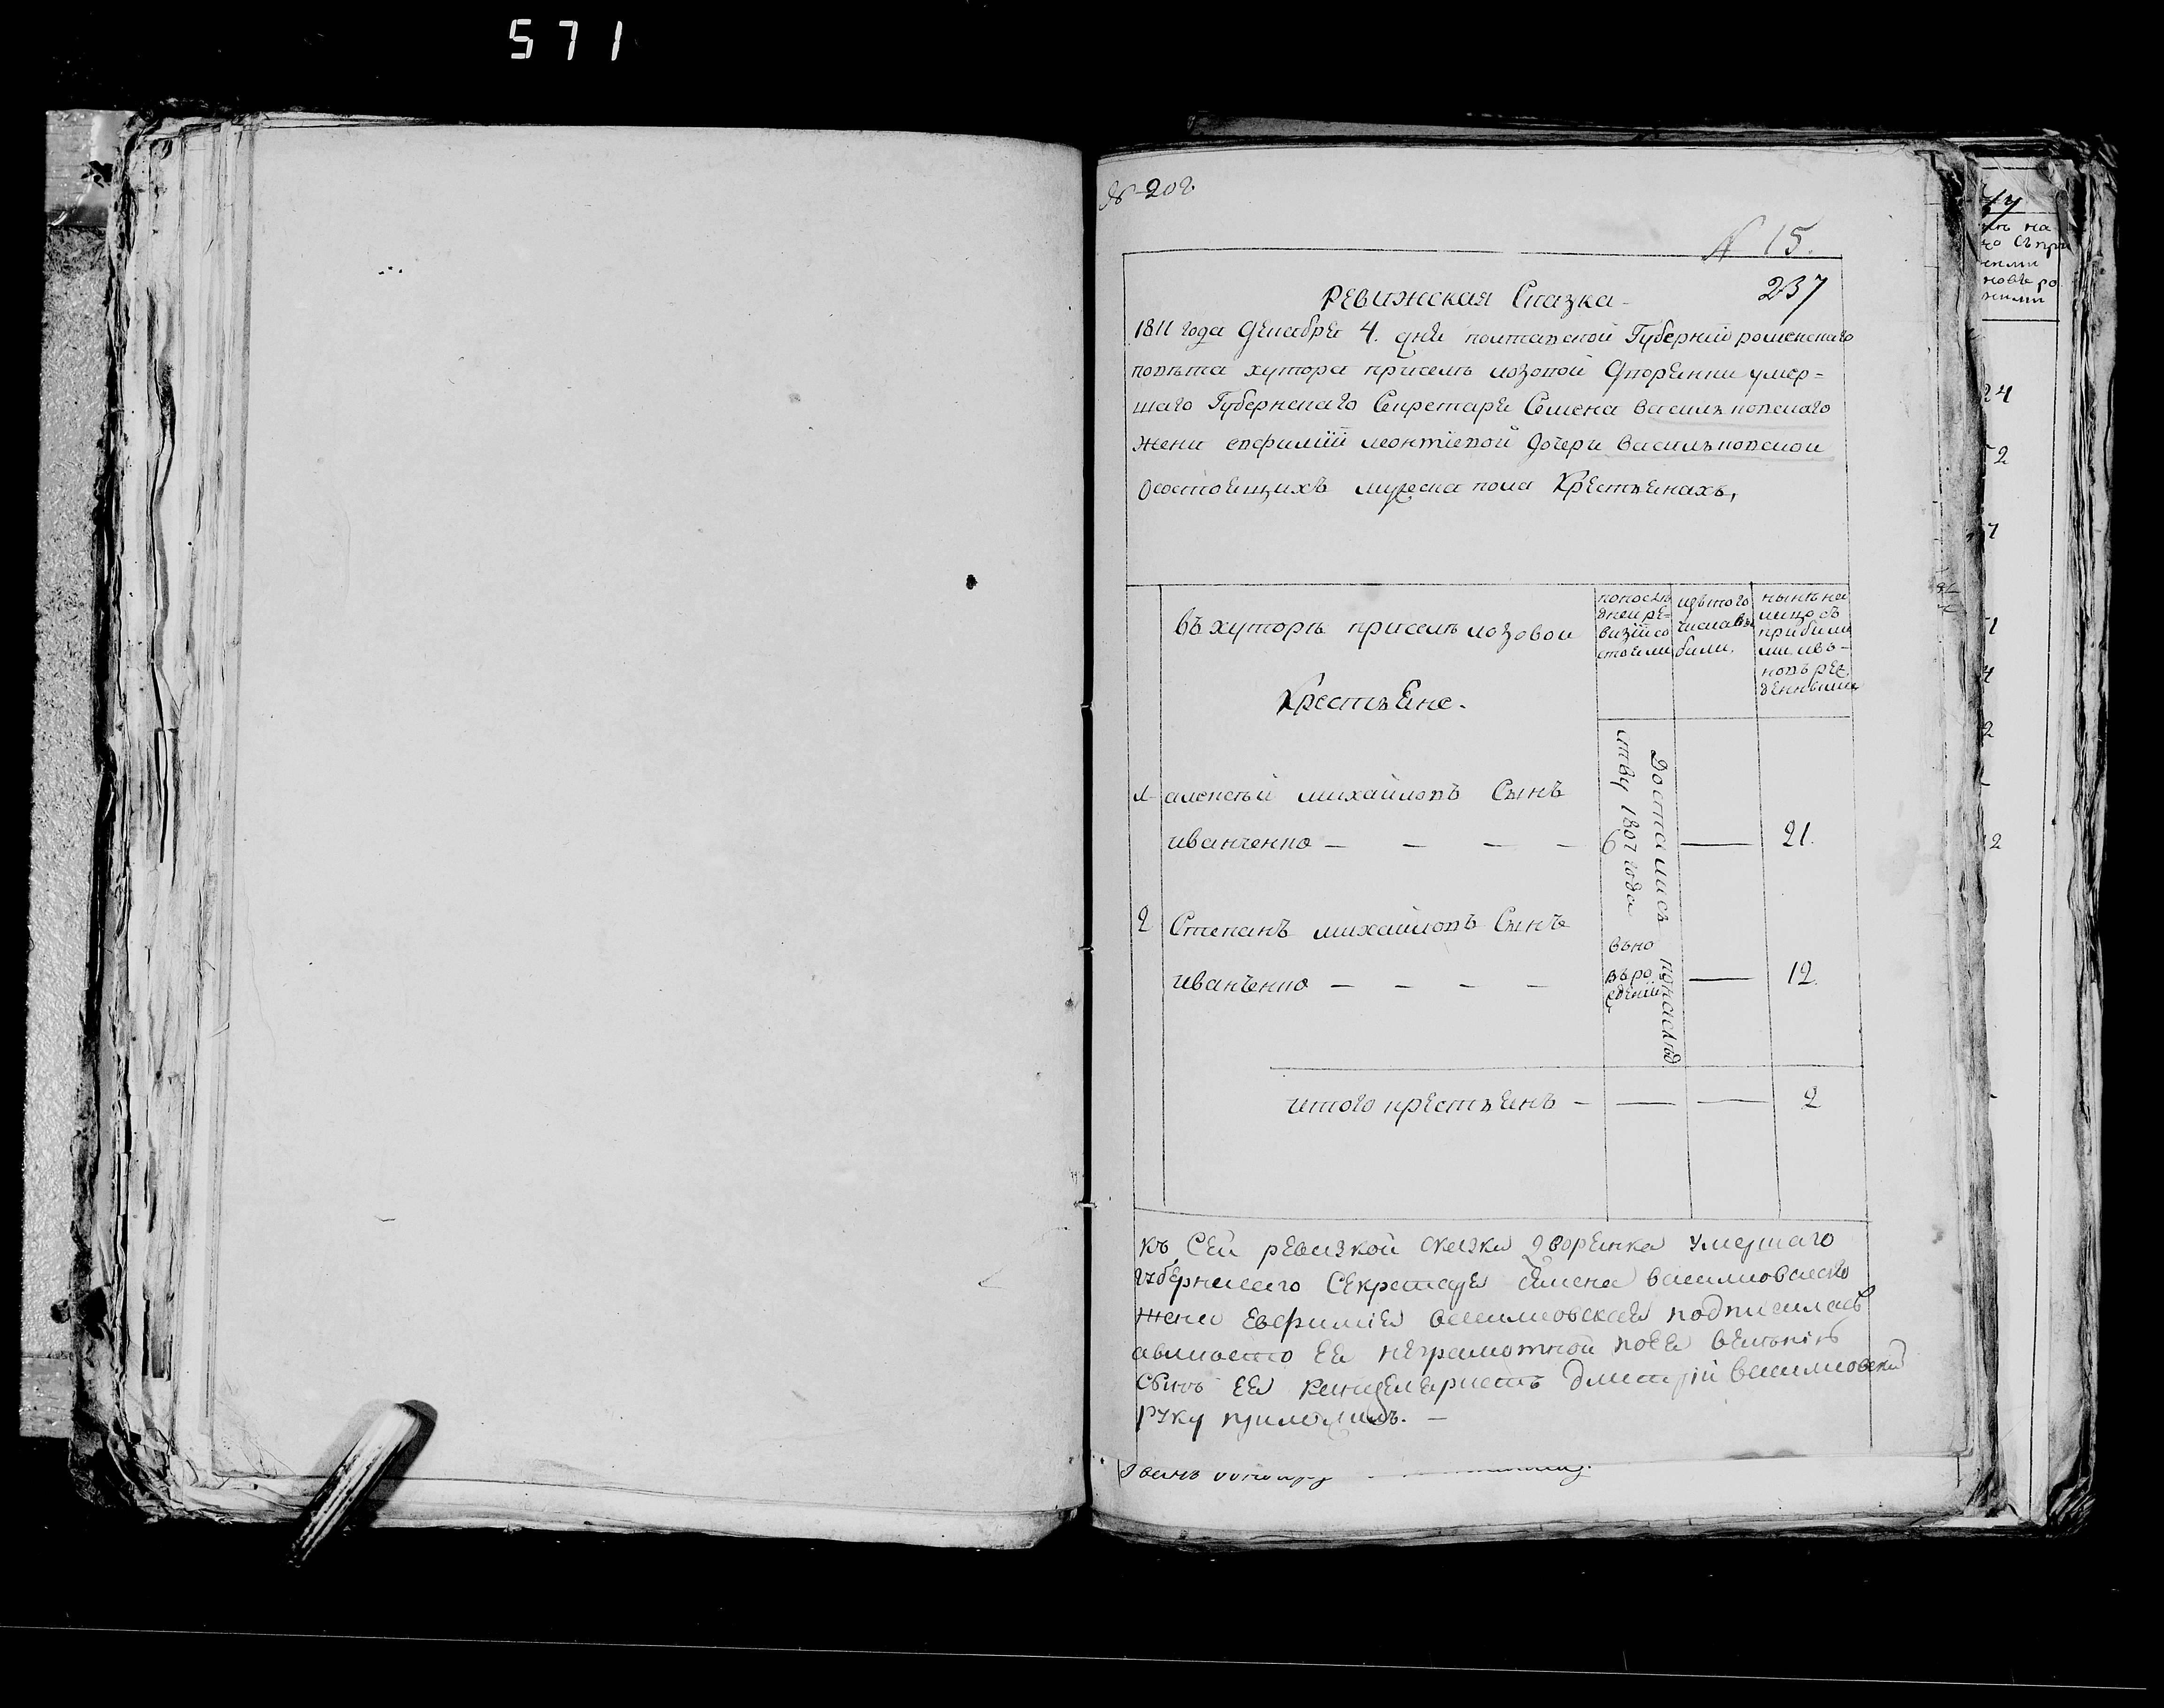 571
№ 202
N 15.
237
Ревижская Сказка
1811 года Декабря 4. дня полтавской Губернии роменскаго
повѣта хутора присемъ лозовой дворянки умер=
шаго Губернскаго Секретаря Семена Васильковскаго
жени евфимїи леонтїевой дочери васильковской
осостоящихъ мужеска пола Крестьянахъ,
въ хуторѣ присемъ лозовой
Крестьяне.
попослѣ
дней ре=
визїи со
стояли
изътого
числа вы
были,
нынѣ на
лицо съ
прибилы
ми ивъ-
новь рож
денными
Достались понаслѣд
ству 1807 года
1 алексѣй михайловъ Сынъ
иванченко — — — — 6 — 21.
2 Степанъ михайловъ Сынъ
иванченко — — — — вьно
въро
ждении — 12.
итого крестьянъ — — — 2
къ Сей ревизкой сказки дворянка умершаго
губернскаго Секретаря Семена василковскаго
жена Евфимия василковская подписалась
авместо ея неграмотной по ея веленїю
сынъ ея канцеляристъ дмитрїй василковский
руку приложилъ. —
24
52
7
1
4
2
12